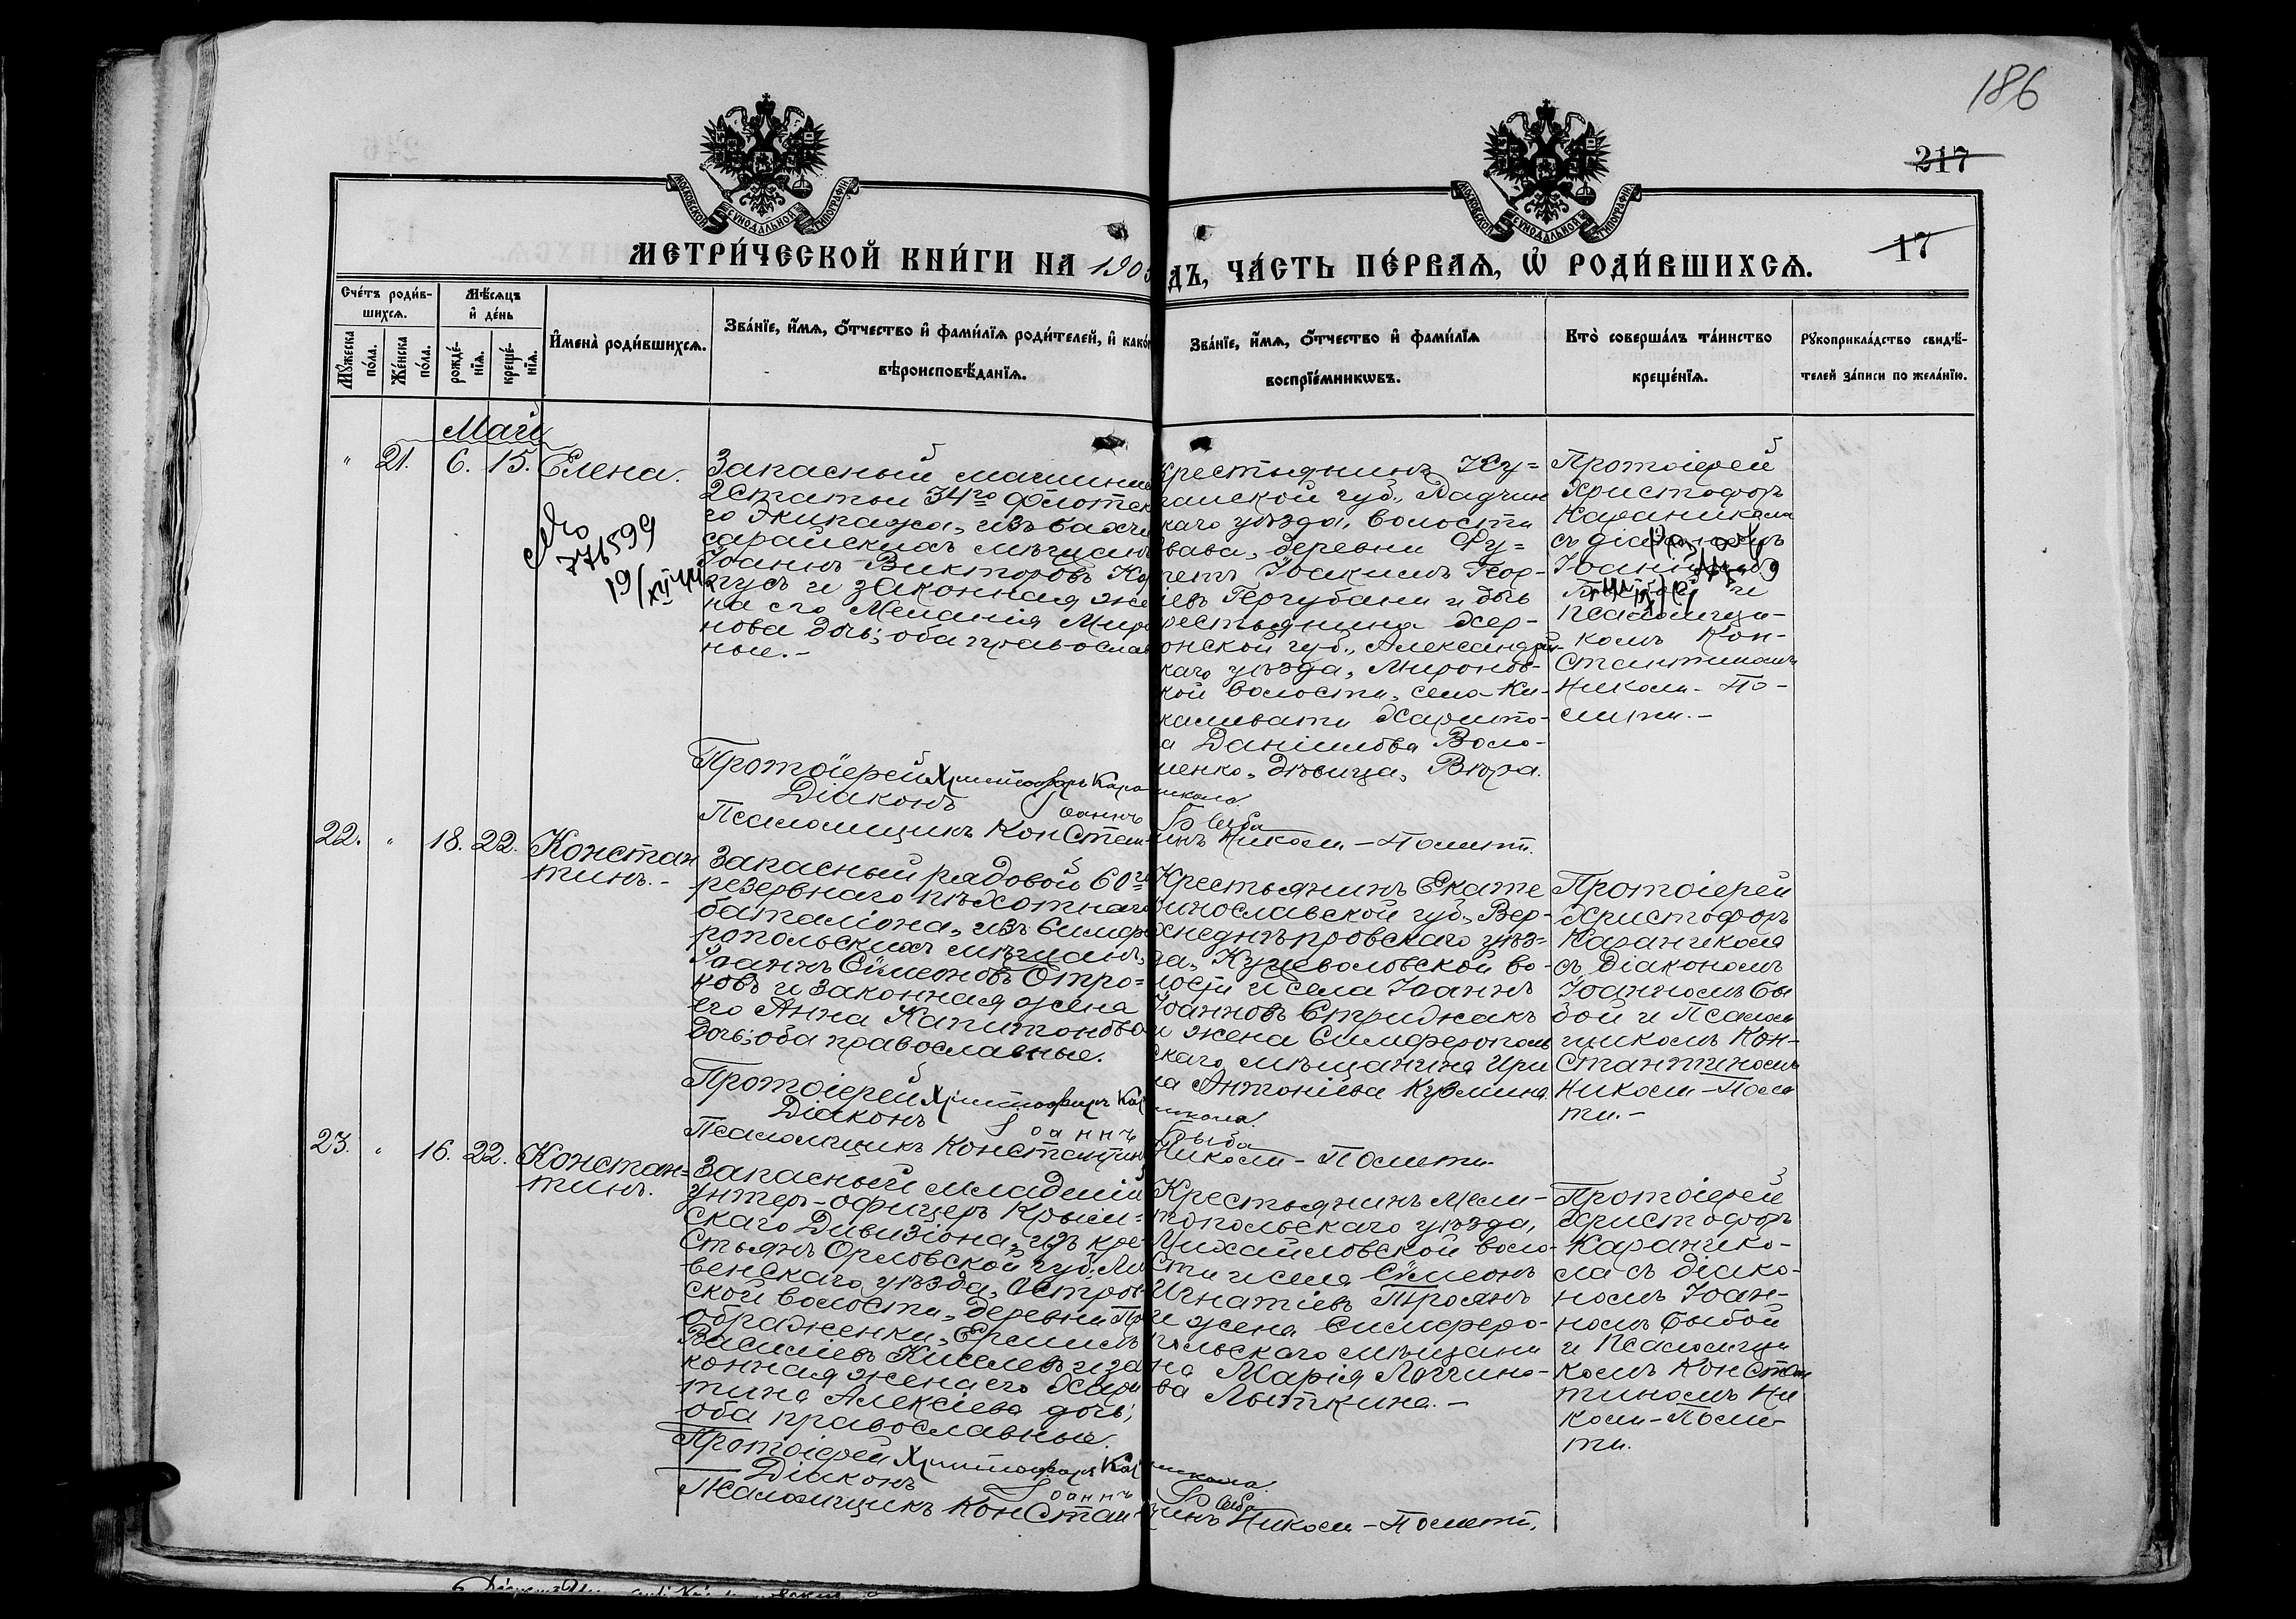 186
217
МОСКОВСКОЙ СѴНОДАЛЬНОЙ ТИПОГРАФІИ
МОСКОВСКОЙ СѴНОДАЛЬНОЙ ТИПОГРАФІИ
МЕТРИ́ЧЕСКОЙ КНИ́ГИ НА 190
ДЪ, ЧА́СТЬ ПЕ́РВАЯ, Ѡ РОДИ́ВШИХСЯ.
17
Сче́тъ роди́в-
шихся.
Мѣ́сяцъ
и де́нь
Му́жеска
по́ла.
Же́нска
по́ла.
рожде́-
нія.
креще́-
нія.
Имена̀ роди́вшихся.
Зва́ніе, и́мя, о́тчество и фами́лія роди́телей, и како́
вѣроисповѣ́данія.
Зва́ніе, и́мя, о́тчество и фами́лія
воспріе́мниковъ.
Кто̀ соверша́лъ та́инство
креще́нія.
Рукоприкла́дство свидѣ́-
телей за́писи по жела́нію.
Май
" 21. 6. 15. Елена.
№
771599
19/XII
Запасный машини
2 статьи 34го флотск
го Экипажа, изъ бахчи
сарайскихъ мѣщанъ
Іоаннъ Викторовъ Ко
пусъ и законная же
на его Меланія Миро
нова дочь; оба православ
ные.-
крестьянинъ Ку=
таиской губ.,
каго уѣзда, волости
деревни Чу=
Іоакимъ Геор-
іевъ и дочь
рестьянина Хер-
онской губ., Александрій-
каго уѣзда, Миронов-
кой волости, села Ки-
Харито-
а Даніилова Воло-
шенко, дѣвица, Вѣра.
Протоіерей
Христофоръ
Караникола
съ діакономъ
Іоанномъ
и
псаломщи-
комъ Кон-
стантиномъ
Николи-По-
лити.-
Протоіерей Христофоръ Караникола.
Діаконъ Іоаннъ Быба
Псаломщикъ Константинъ Николи-Полити.
22. " 18. 22. Констан
тинъ.-
Запасный рядовой 60го
резервнаго пѣхотнаго
баталіона, изъ Симфе
ропольскихъ мѣщанъ,
Іоаннъ Сѵмеоновъ Отро=
ковъ и законная жена
его Анна Капитонова
дочь; оба православные.
Крестьянинъ Екате
ринославской губ., Вер-
хнеднѣпровскаго уѣз=
да, Куцеволовской во-
лости и села Іоаннъ
Іоанновъ Стрижакъ
и жена Симферополь
скаго мѣщанина Ири
на Антоніева Кузмина.
Протоіерей
Христофоръ
Караникола
съ діакономъ
Іоанномъ Бы
бой и Псалом
щикомъ Кон-
стантиномъ
Николи-Поли
ти.-
Протоіерей Христофоръ Караникола.
Діаконъ Іоаннъ Быба
Псаломщикъ Константинъ Николи-Полити.
23. " 16. 22. Констан=
тинъ.
Запасный младшій
унтеръ-офицеръ Крым=
скаго Дивизіона, изъ кре
стьянъ Орловской губ., Ли
венскаго уѣзда, Остров
ской волости, деревни Пр
ображенки,
Василіевъ Киселевъ и за
конная жена его Хари
тина Алексіева дочь;
оба православные.
Крестьянинъ Мели-
топольскаго уѣзда,
Михайловской воло-
сти и села Сѵмеонъ
Игнатіевъ Троянъ
и жена Симферо-
польскаго мѣщани
на Марія Логино-
ва Лыткина.-
Протоіерей
Христофоръ
Каранико-
ла съ діако-
номъ Іоан-
номъ Быбой
и Псаломщи
комъ Констан
тиномъ Ни
коли-Поли-
ти.
Протоіерей Христофоръ Караникола.
Діаконъ Іоаннъ Быба
Псаломщикъ Константинъ Николи-Полити.